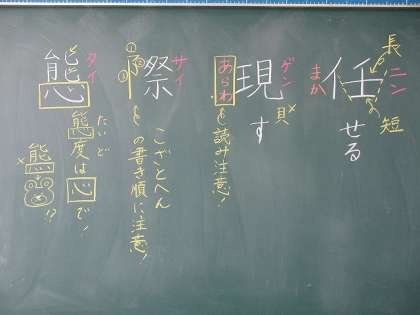 長
ニン
任
まか
せる
短
ゲン
現
貝×
す
あらわ
読み注意!
サイ
際
①
②
③
こざとへん
阝の書き順に注意!
タイ
態
たいど
態度は心で!
×熊
!?